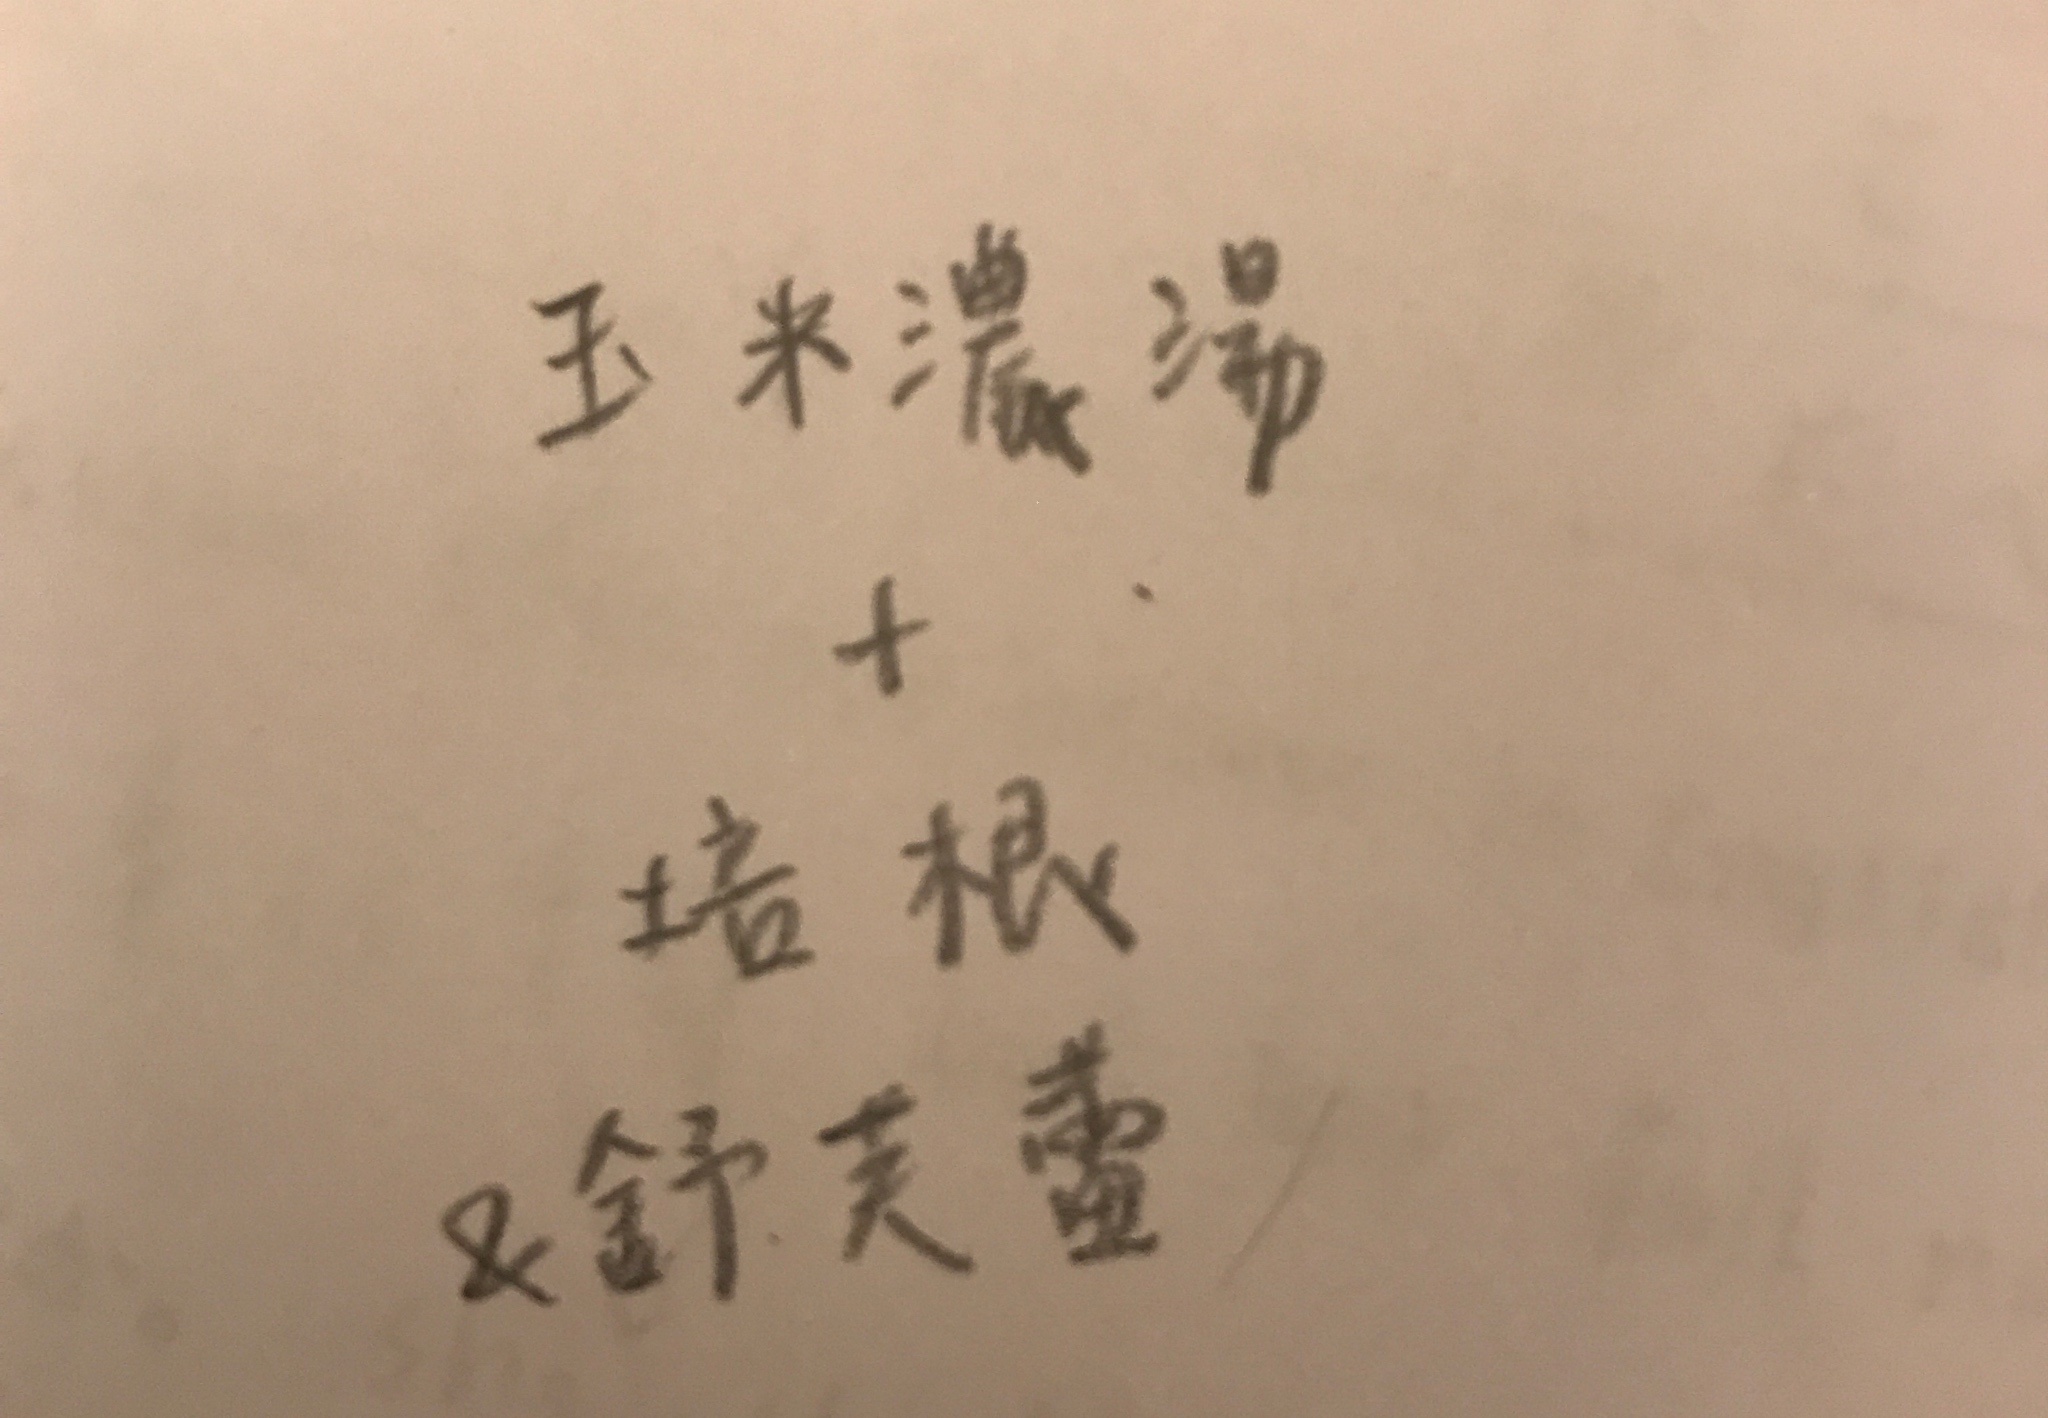 玉米濃湯
+
培根
&舒芙蕾